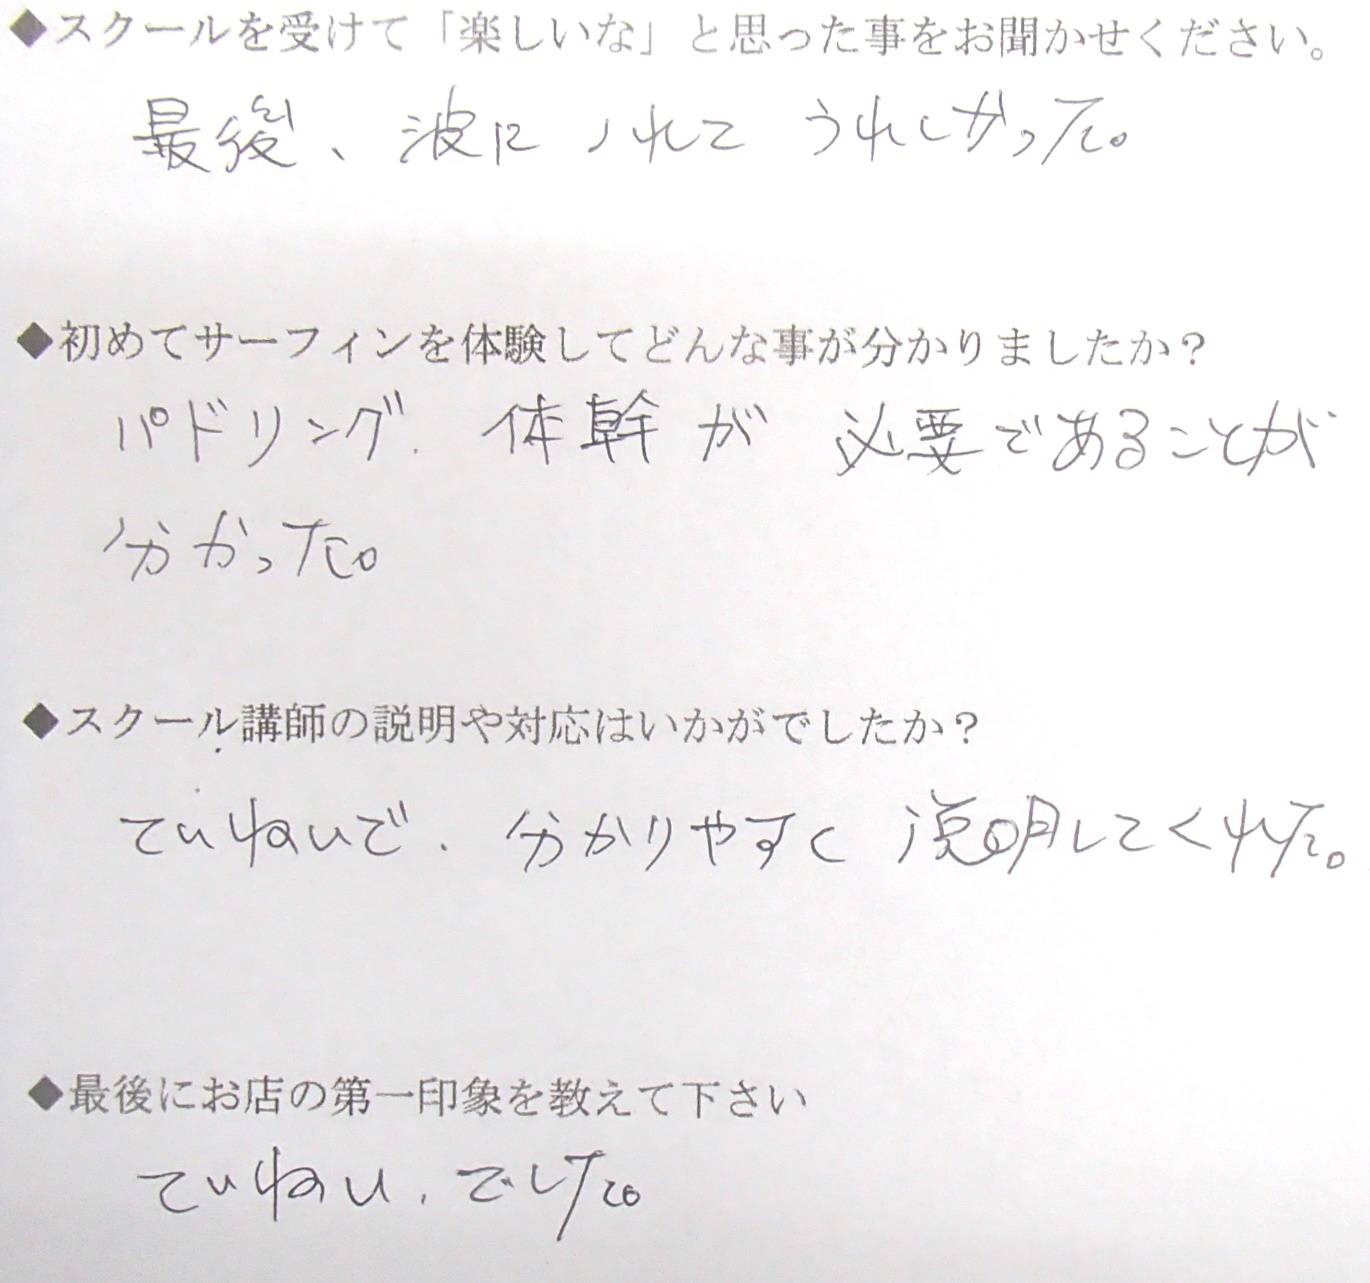 ◆スクールを受けて「楽しいな」と思った事をお聞かせください。
最後、波にノれて うれしかった。
◆初めてサーフィンを体験してどんな事が分かりましたか？
パドリング、体幹が 必要であることが
分かった。
◆スクール講師の説明や対応はいかがでしたか？
ていねいで、分かりやすく 説明してくれた。
◆最後にお店の第一印象を教えて下さい
ていねい、でした。